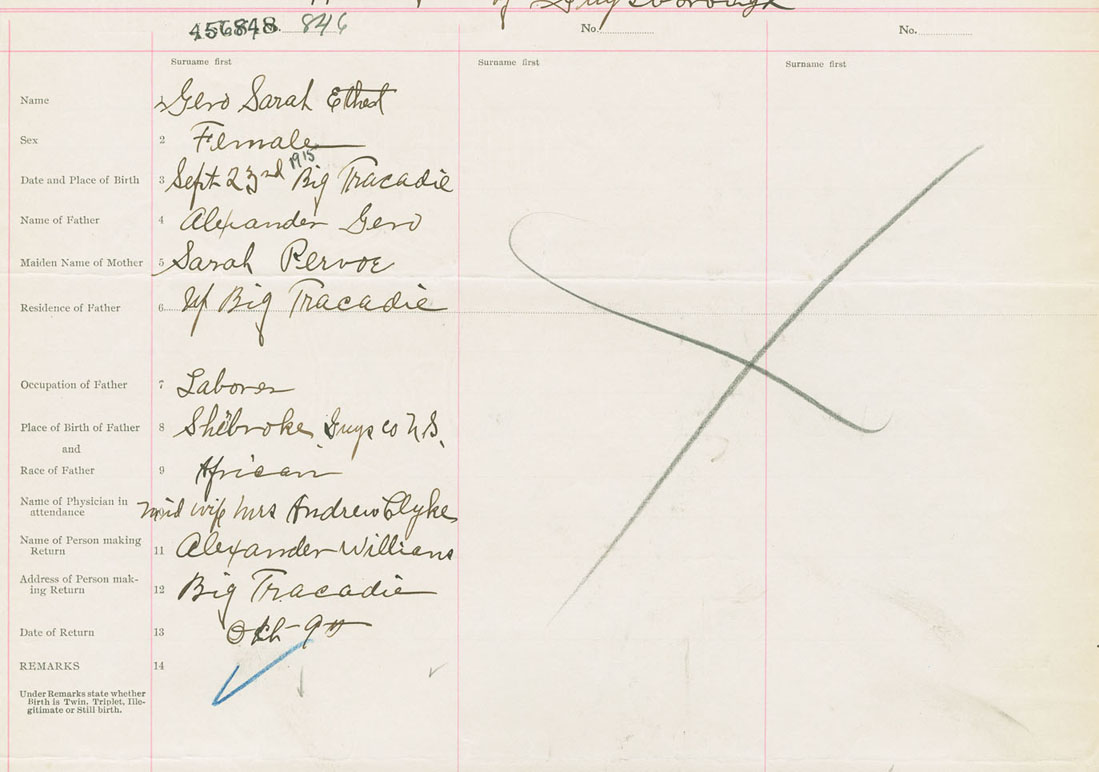 of Guysborough
456848. 846
No.
No.
Surname first
Surname first
Surname first
Name 1 Gero Sarah Ethel
Sex 2 Female
1915
Date and Place of Birth 3 Sept 23rd Big Tracadie
Name of Father 4 Alexander Gero
Maiden Name of Mother 5 Sarah Pervoe
Residence of Father 6 Up Big Tracadie
Occupation of Father 7 Laborer
Place of Birth of Father 8 Shebroke Guys co N.S.
and
Race of Father 9 African
Name of Physician in
attendance mid wife Mrs Andrew Clyke
Name of Person making
Return 11 Alexander Williams
Address of Person mak-
ing Return 12 Big Tracadie
Date of Return 13 Oct 9th
REMARKS 14
Under Remarks state whether
Birth is Twin, Triplet, Ille-
gitimate or Still birth.